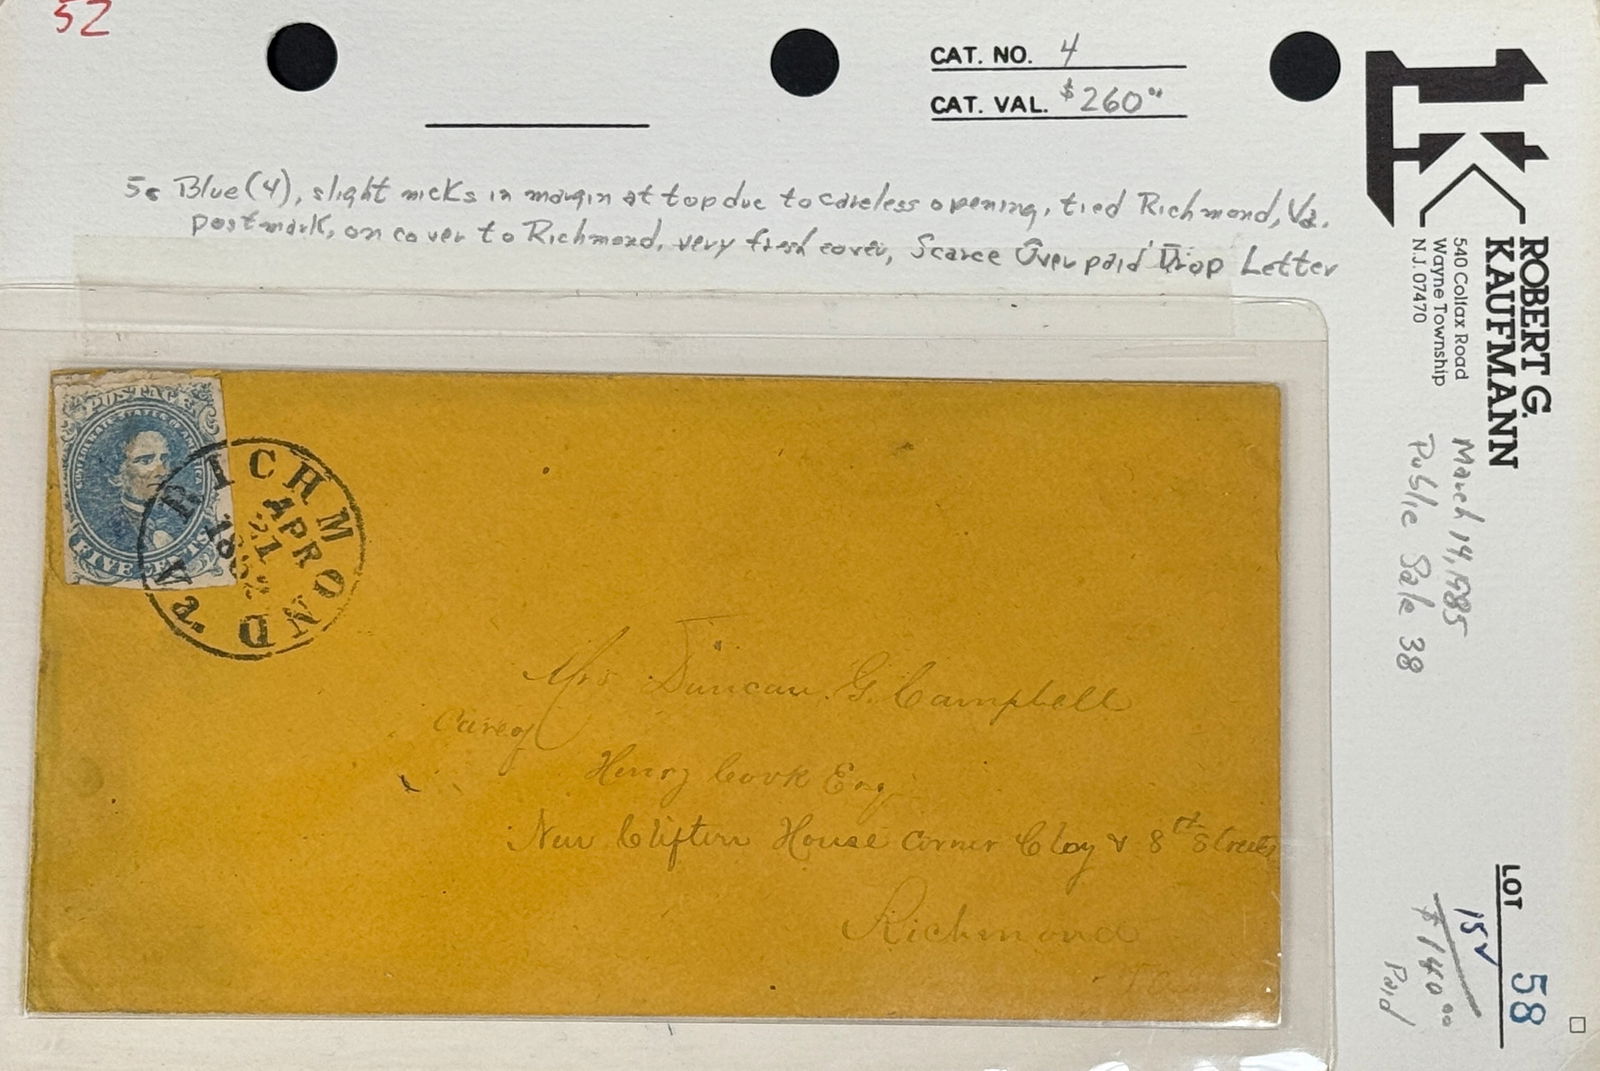 52
CAT. NO. 4
CAT. VAL. $260"
5c Blue (4), slight nicks in margin at top due to careless opening, tied Richmond, Va.
postmark, on cover to Richmond, very fresh cover, Scarce Overpaid Drop Letter
POSTAGE
CONFEDERATE STATES OF AMERICA
FIVE CENTS
RICHMOND Va.
APR
21
1862
Mrs Duncan G. Campbell
Care of
Henry Cook Esq
New Clifton House Corner Clay & 8th Streets
Richmond
Va
1K
ROBERT G.
KAUFMANN
540 Colfax Road
Wayne Township
N.J. 07470
March 14, 1985
Public Sale 38
LOT 58
15V
$140.00
Paid